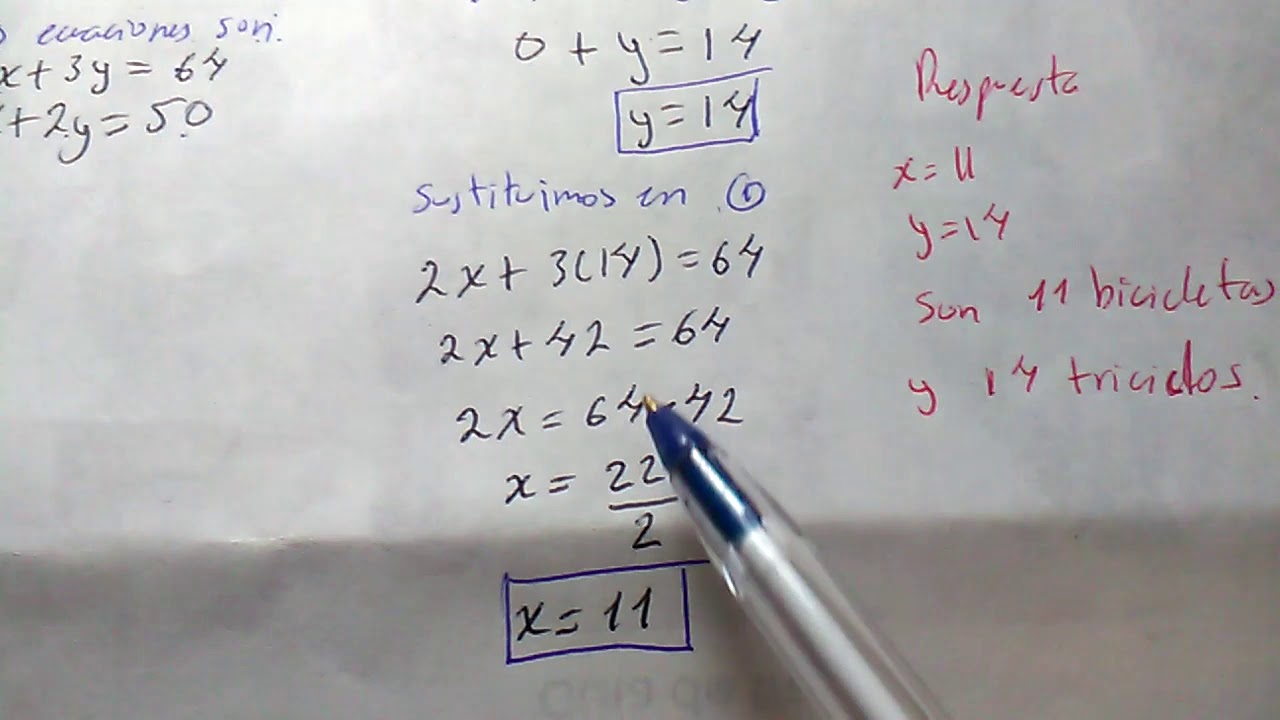 ecuaciones son:
x + 3y = 64
+ 2y = 50
0 + y = 14
y = 14
Sustituimos en ①
2x + 3(14) = 64
2x + 42 = 64
2x = 64 - 42
x = 22/2
x = 11
Respuesta
x = 11
y = 14
Son 11 bicicletas
y 14 triciclos.